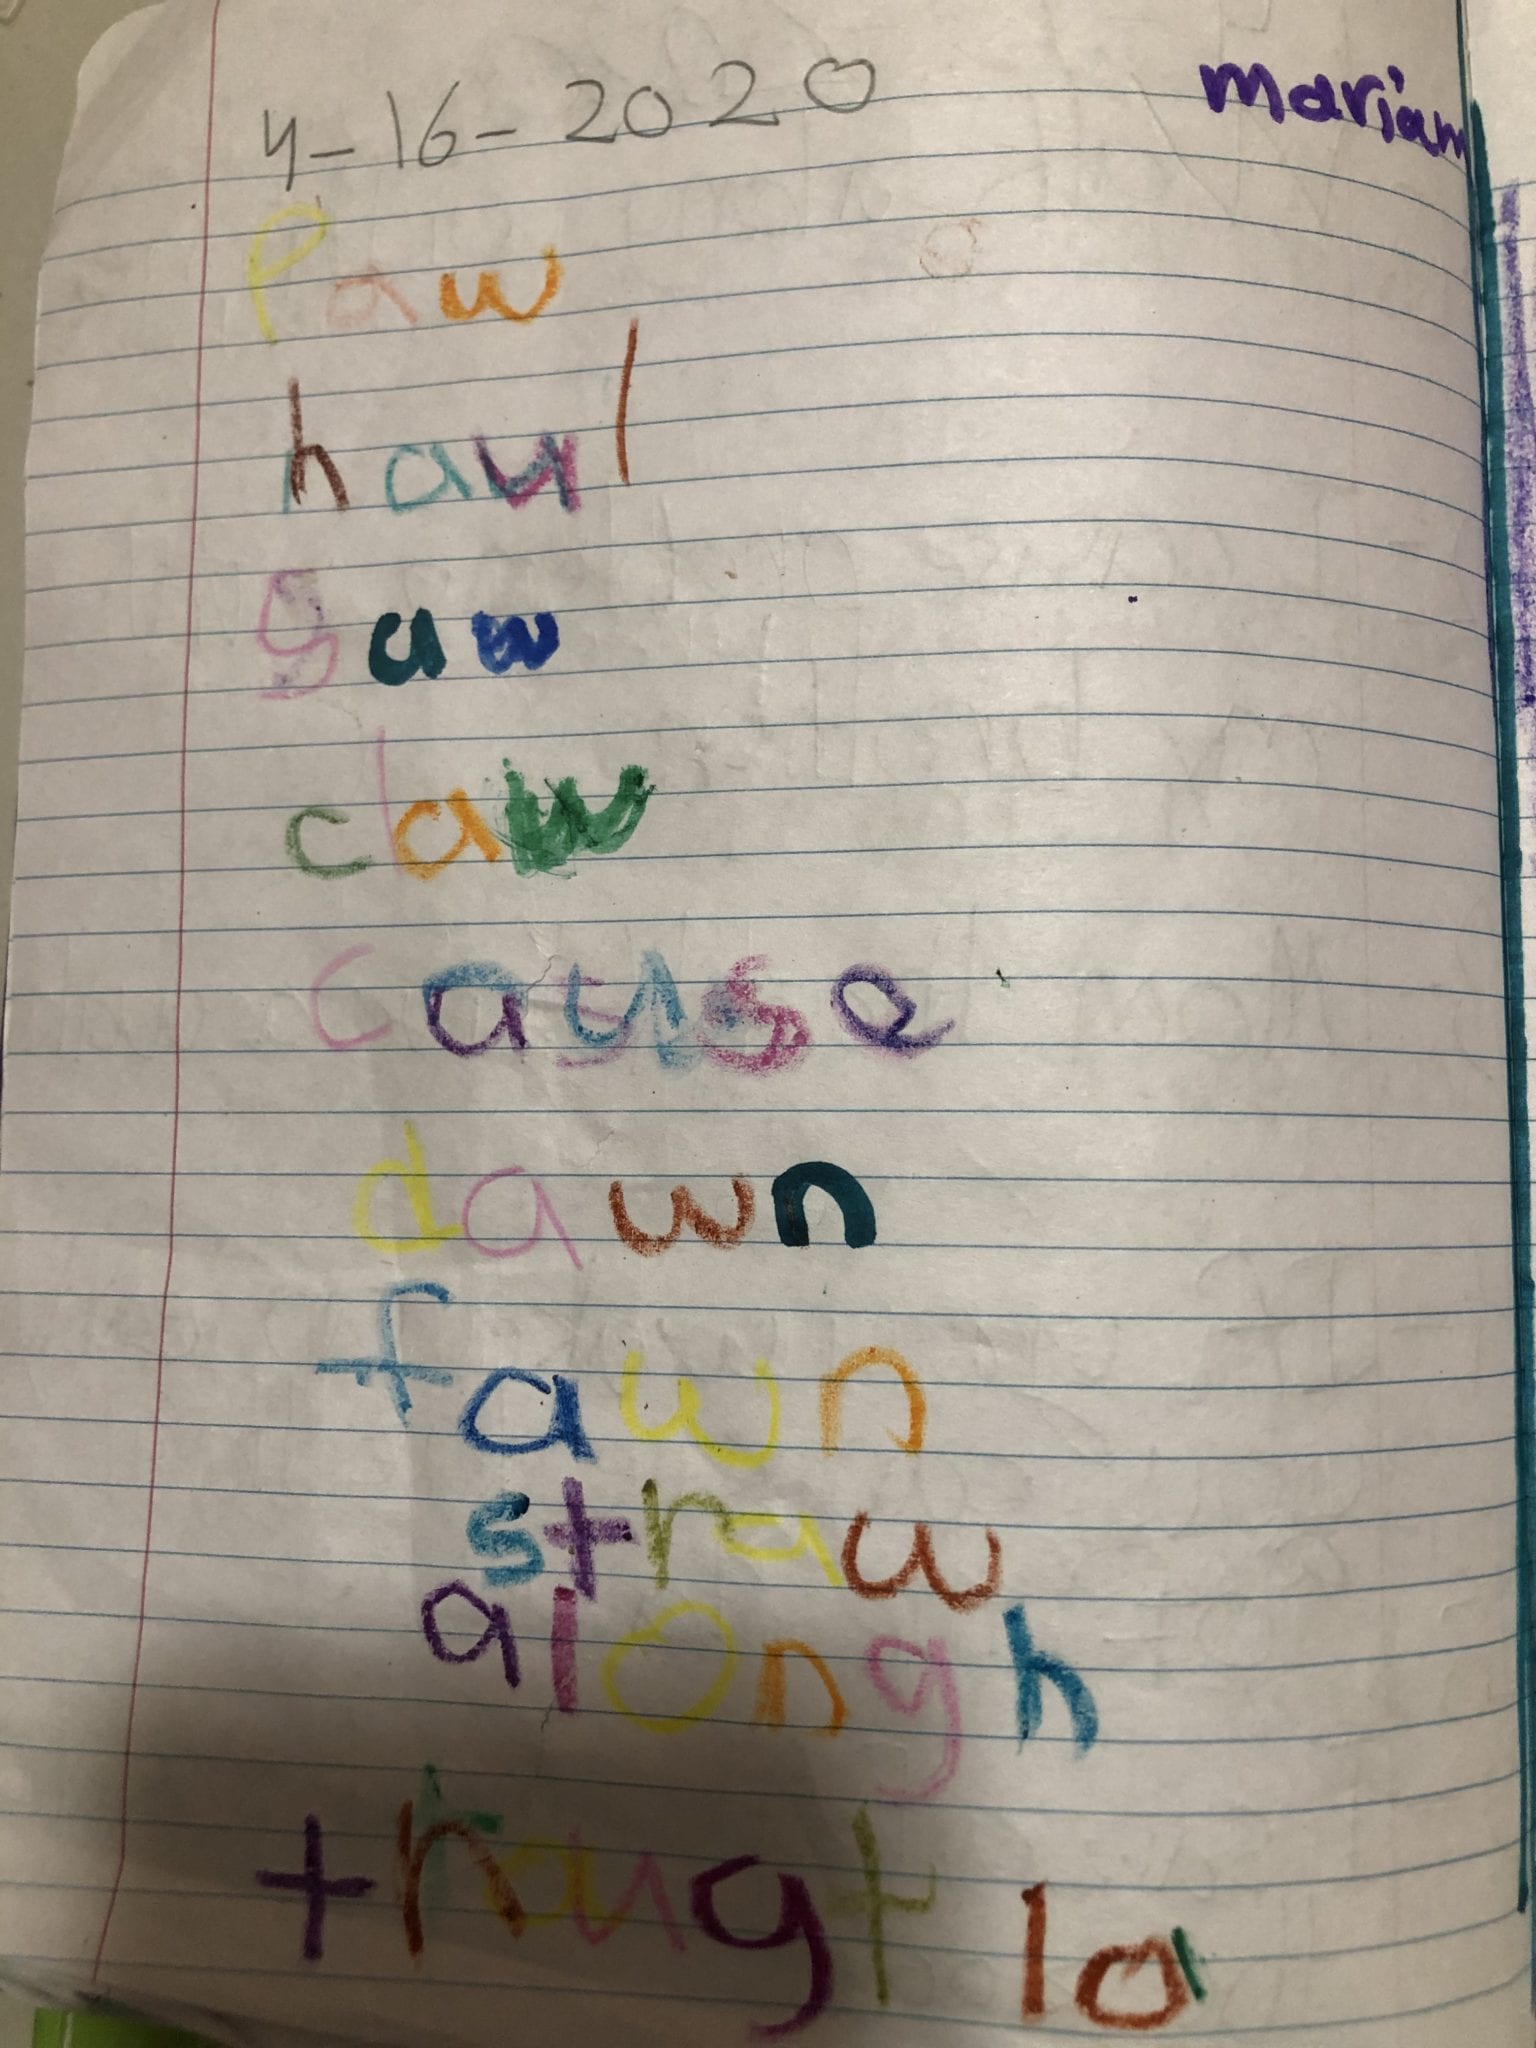 4-16-2020 mariam
Paw
haul
Saw
claw
cause
dawn
fawn
straw
alongh
thaugt la